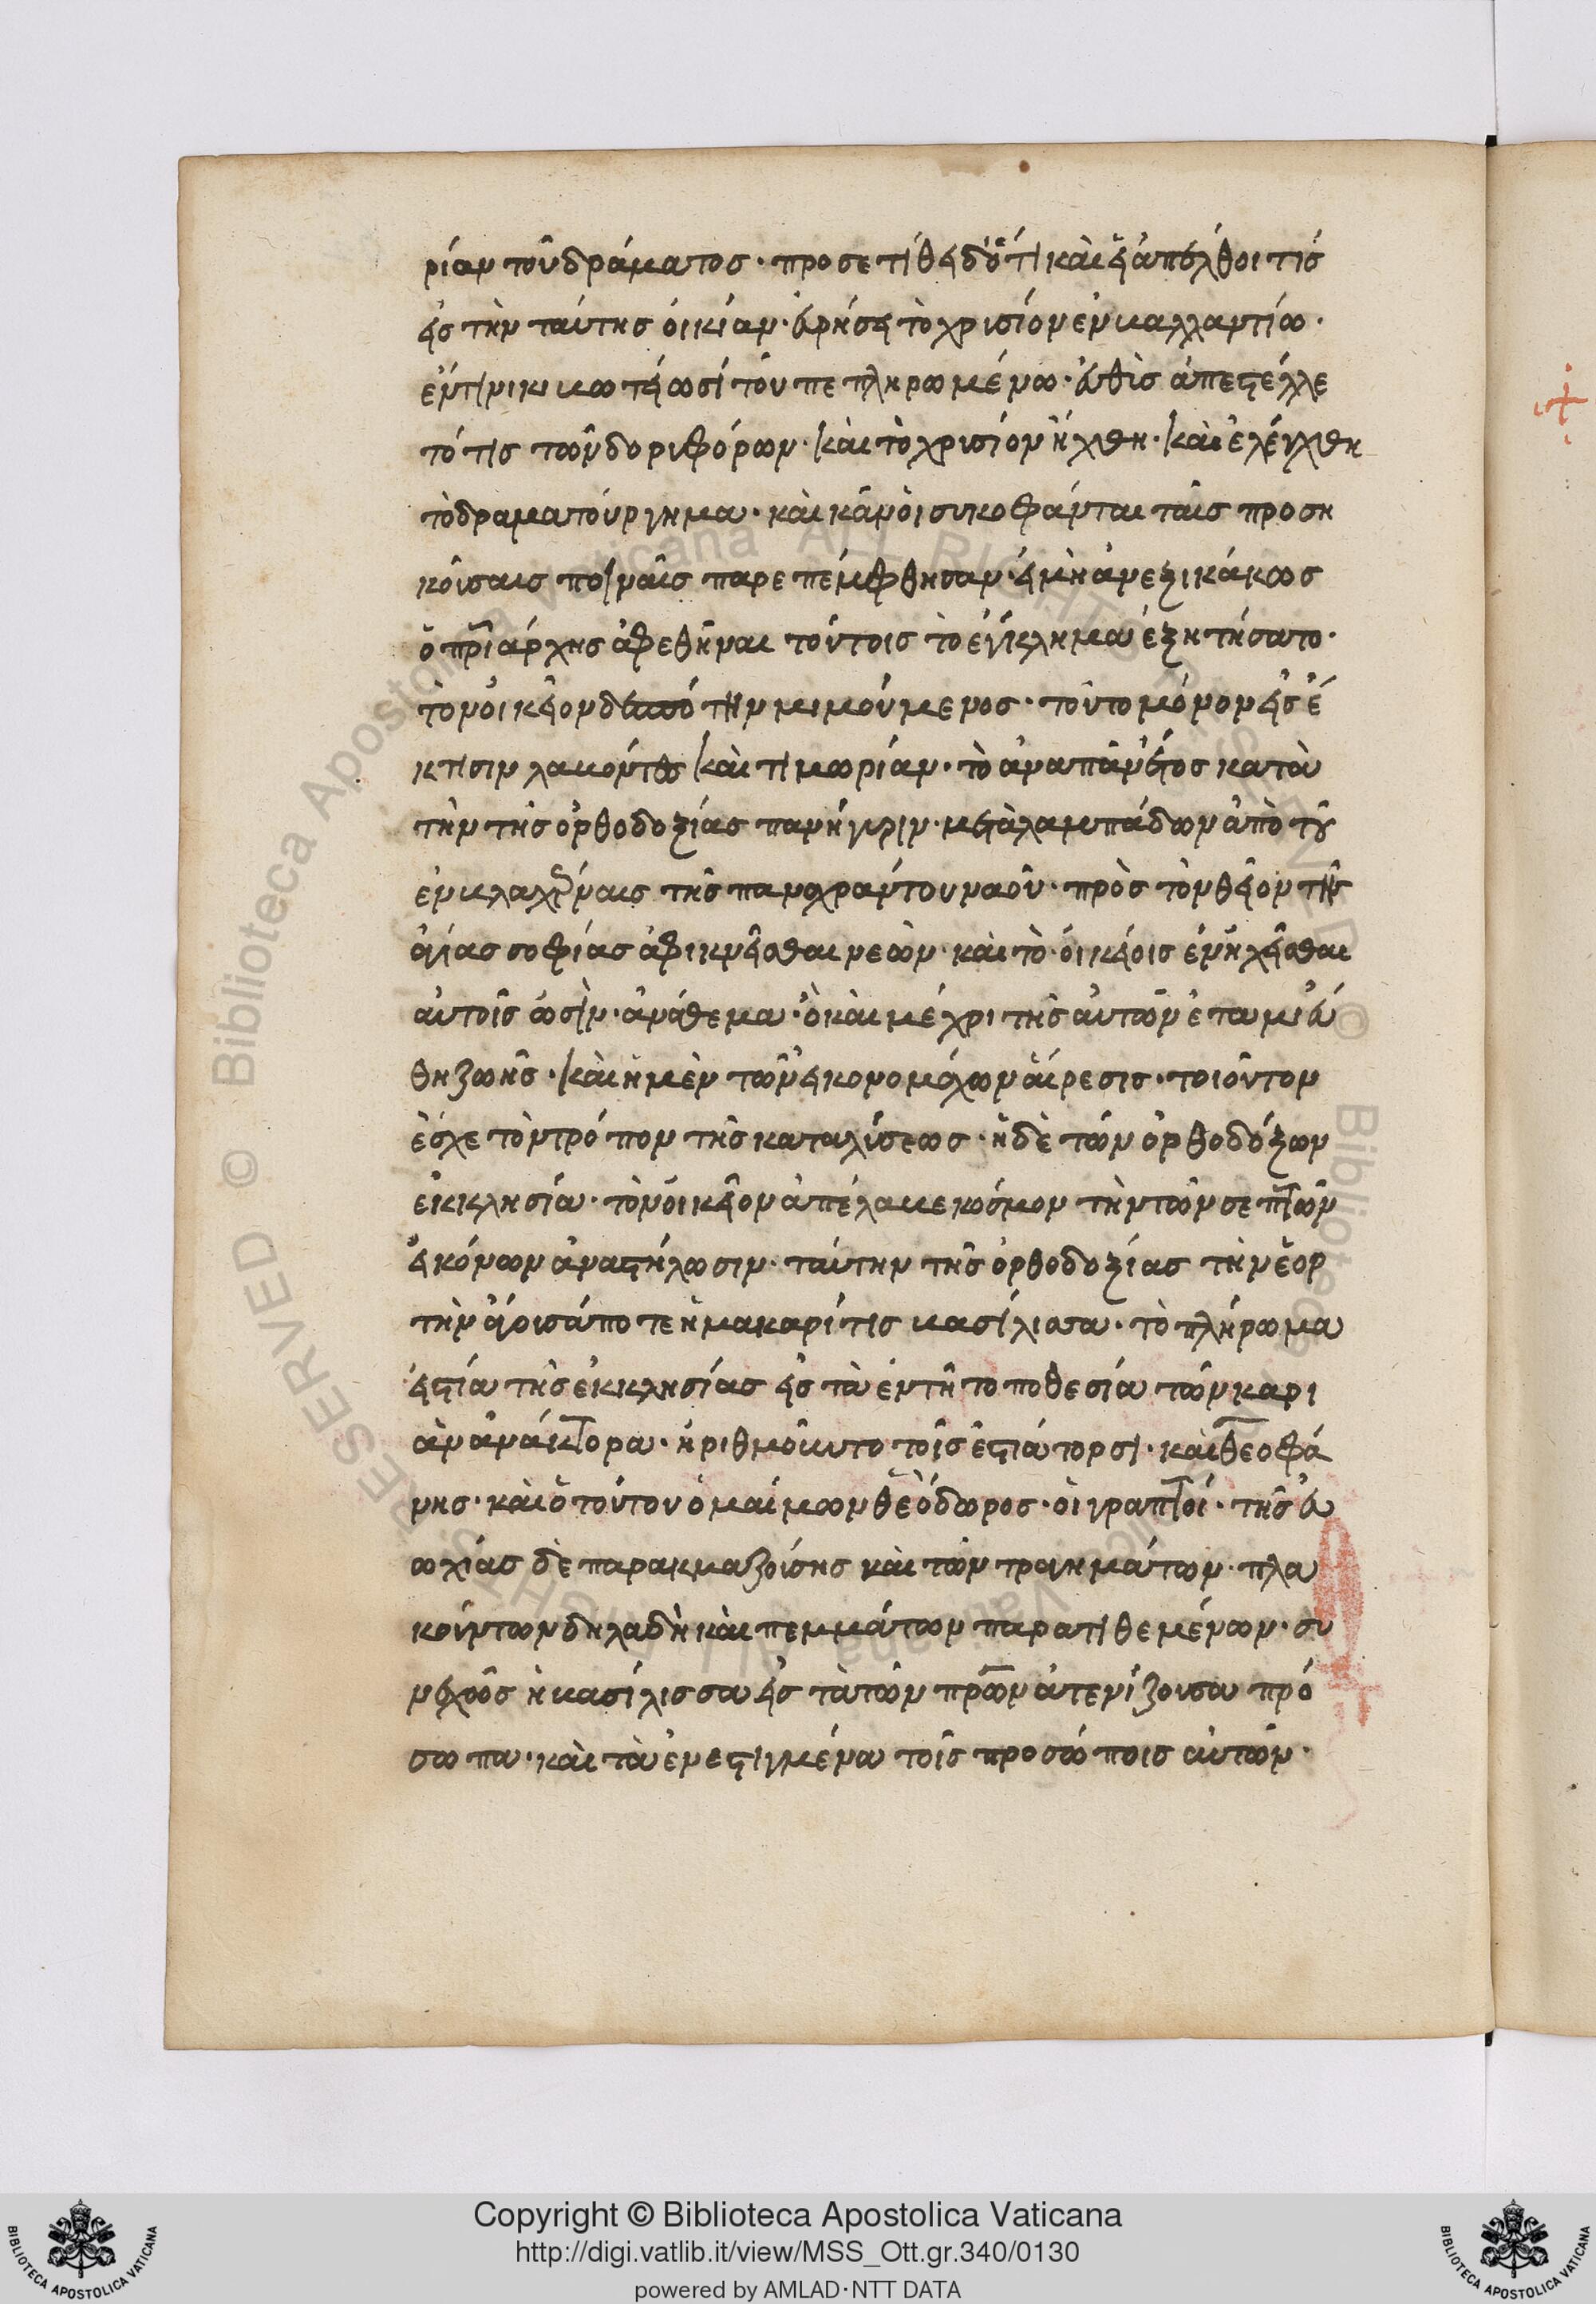 ρίαν τοῦ δράματος· προσετίθει δὲ ὅτι καὶ εἰ ἀπέλθοι τίς
εἰς τὴν ταύτης οἰκίαν· εὑρήσει τὸ χρισίον ἐν βαλλαντίω·
ἐντινι κιβωτίω σίτου πεπληρωμένω· εὐθὶς ἀπεστέλλε
τό τις τῶν δοριφόρων· καὶ τὸ χρισίον ἤχθη· καὶ ἐλέγχθη
τὸ δραματούργημα· καὶ κᾂν ὁι συκοφάνται ταῖς προση
κοίσαις ποιναῖς παρεπέμφθησαν· εἰ μὴ ἀνεξικάκως
ὁ πριάρχης ἀφεθῆναι τούτοις τὸ ἐγκλημα ἐξητήσατο·
τὸν οἰκεῖον δεσπότην μιμούμενος· τοῦτο μόνον εἰς ἔ
κτισιν λαβόντας καὶ τιμωρίαν· τὸ ἀναπᾶν ἔτος κατὰ
τὴν τῆς ὀρθοδοξίας πανήγυριν· μετὰ λαμπάδων ἀπὸ τοῦ
ἐν βλαχέρναις τῆς παναχράντου ναοῦ· πρὸς τὸν θεῖον τῆς
ἁγίας σοφίας ἀφικνεῖσθαι νεὼν· καὶ τὸ οἰκείοις ἐνηχεῖσθαι
αὐτοῖς ὠσὶν· ἀνάθεμα· ὃ καὶ μέχρι τῆς αὐτῶν ἐταμιεύ
θη ζωῆς· καὶ ἡ μὲν τῶν εἰκονομάχων αἵρεσις· τοιοῦτον
ἔσχε τὸν τρόπον τῆς καταλύσεως· ἡ δὲ τῶν ὀρθοδόξων
ἐκκλησία· τὸν οἰκεῖον ἀπέλαβε κόσμον τὴν τῶν σεπτῶν
εἰκόνων ἀναστήλωσιν· ταύτην τῆς ὀρθοδοξίας τὴν ἑορ
τὴν ἄγουσά ποτε ἡ μακαρίτις βασίλισσα· τὸ πλήρωμα
εἱστία τῆς ἐκκλησίας εἰς τὰ ἐν τῇ τοποθεσία τῶν καρι
ὰν ἀνάκτορα· ἠριθμοῦντο τοῖς ἑστιάτορσι· καὶ θεοφά
νης· καὶ ὁ τούτου ὁμαίμων θεόδωρος· οἱ γραπτοί· τῆς εὐ
ωχίας δὲ παρακμαζούσης καὶ τῶν τραγημάτων· πλα
κούντων δηλαδὴ καὶ πεμμάτων παρατιθεμένων· συ
νεχῶς ἡ βασίλισσα εἰς τὰ τῶν πρων ἀτενίζουσα πρό
σωπα· καὶ τὰ ἐνεστιγμένα τοῖς προσώποις αὐτῶν·
Copyright © Biblioteca Apostolica Vaticana
http://digi.vatlib.it/view/MSS_Ott.gr.340/0130
powered by AMLAD·NTT DATA